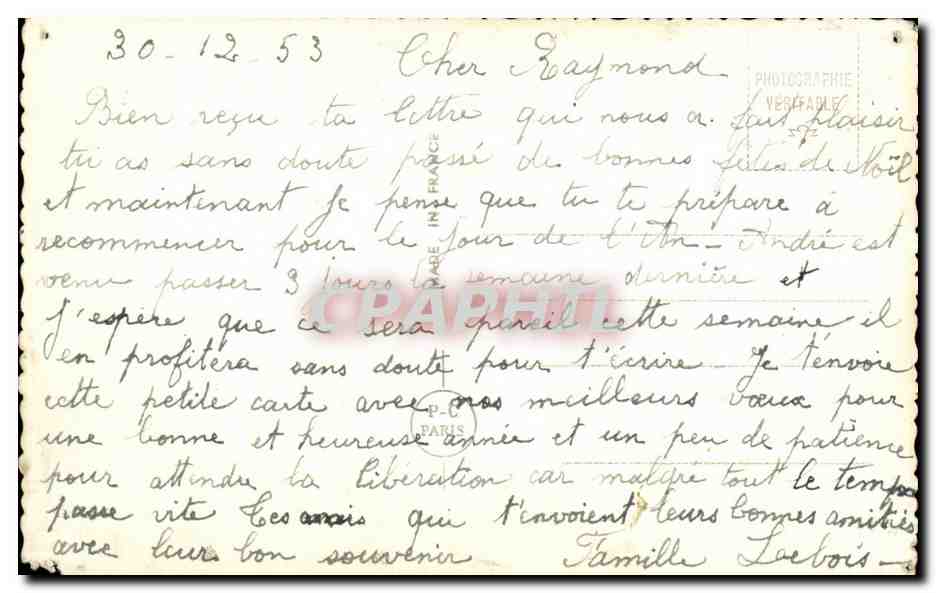 30-12-53 Cher Raymond
PHOTOGRAPHIE
VÉRITABLE
Bien reçu ta lettre qui nous a fait plaisir
tu as sans doute passé de bonnes fêtes de Noël
et maintenant Je pense que tu te prépare à
recommencer pour le Jour de l'An - André est
venu passer 3 Jours la semaine dernière et
j'espère que ce sera pareil cette semaine il
en profitera sans doute pour t'écrire - Je t'envoie
cette petite carte avec nos meilleurs vœux pour
une bonne et heureuse année et un peu de patience
pour attendre la libération car malgré tout le temps
passe vite Tes amis qui t'envoient leurs bonnes amitiés
avec leur bon souvenir Famille Lebois -
MADE IN FRANCE
CPAPHIL
P-C
PARIS